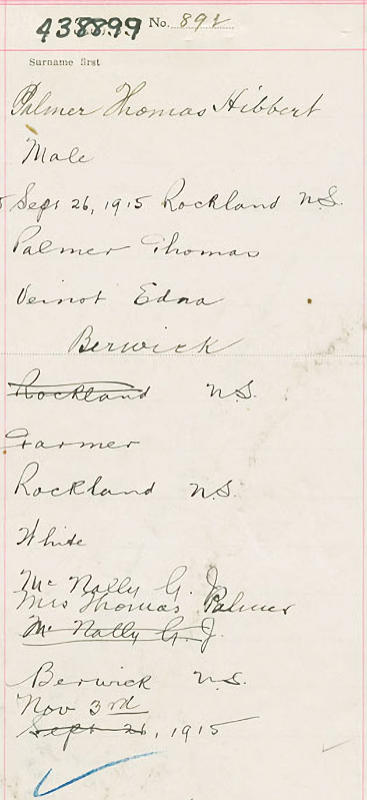 438899 No. 892
Surname first
Palmer Thomas Hibbert
Male
Sept 26, 1915 Rockland N.S.
Palmer Thomas
Veinot Edna
Berwick
Rockland N.S.
Farmer
Rockland N.S.
White
Mc Nally G. J.
Mrs Thomas Palmer
Mc Nally G. J.
Berwick N.S.
Nov 3rd
Sept 26, 1915